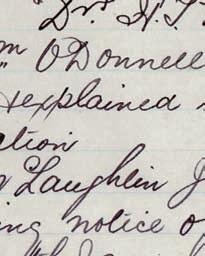 Dr. H. T
m O'Donnell
explained
ation
Laughlin J
ing notice o